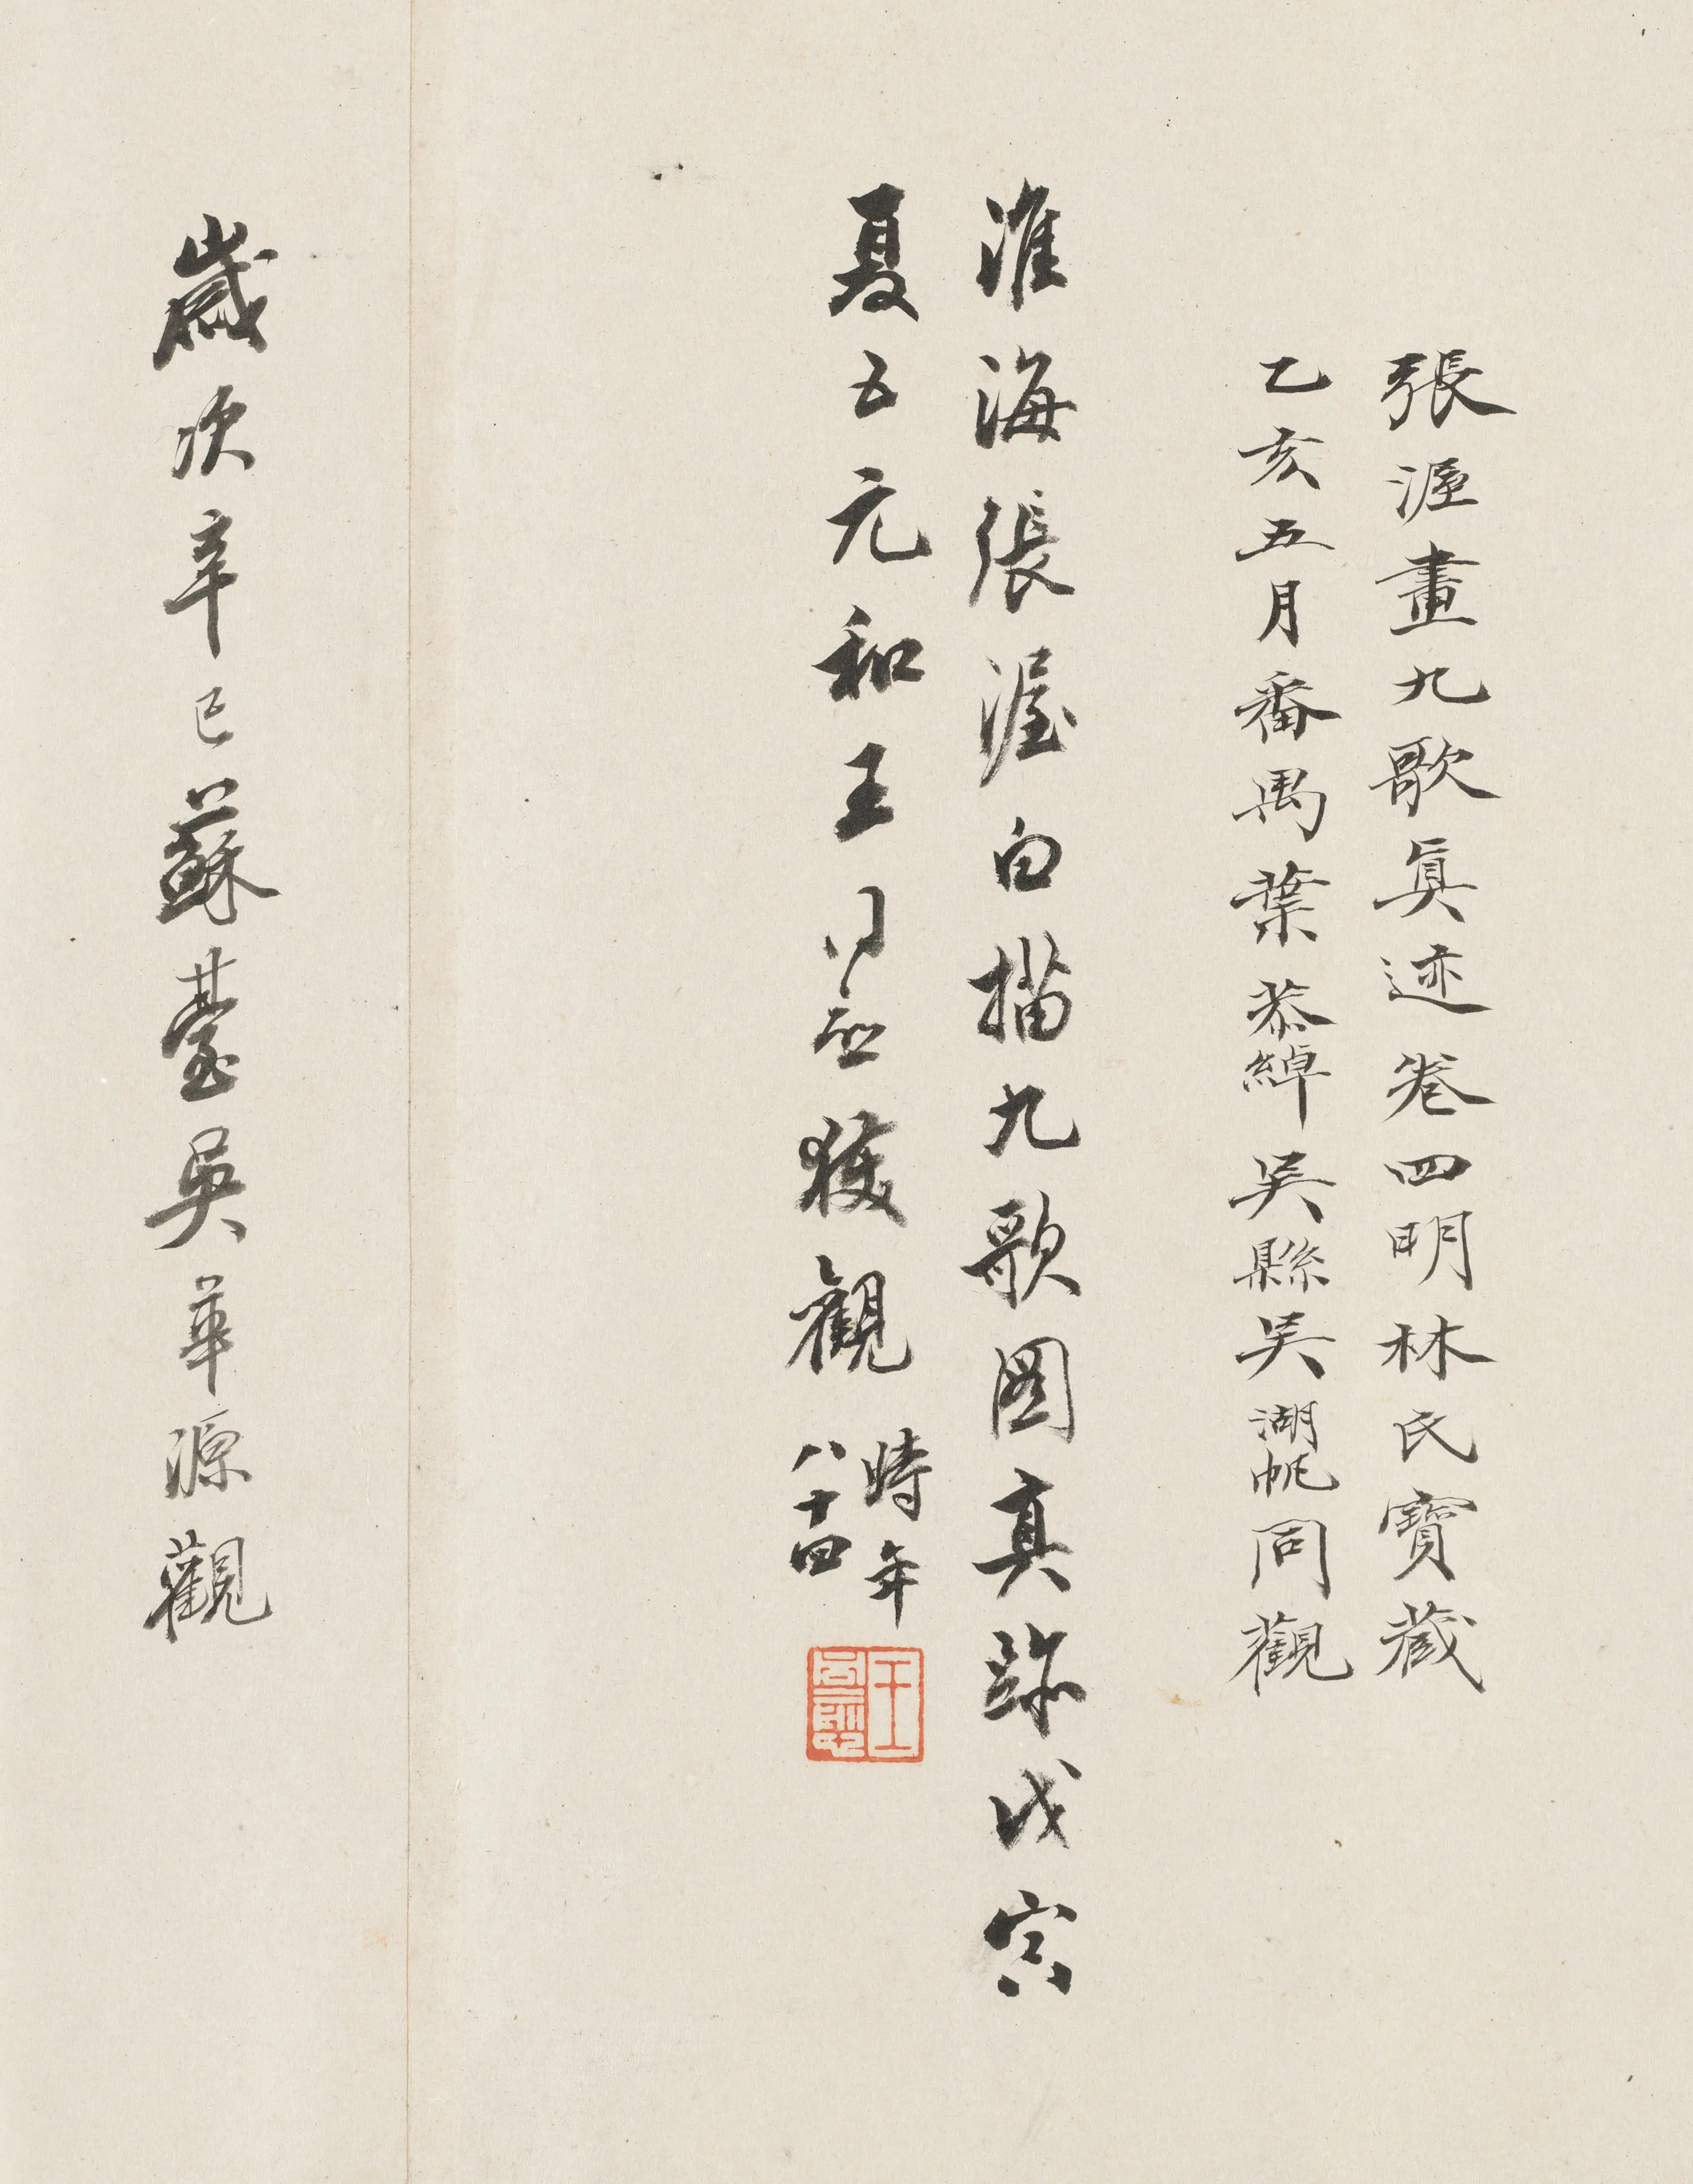 張渥畫九歌眞迹卷四明林氏寶藏
乙亥五月番禺葉恭綽吳縣吳湖帆同觀
淮海張渥白描九歌图真跡戊寅
夏五元和王同愈獲觀
時年
八十四
歲次辛巳蘇臺吳華源觀